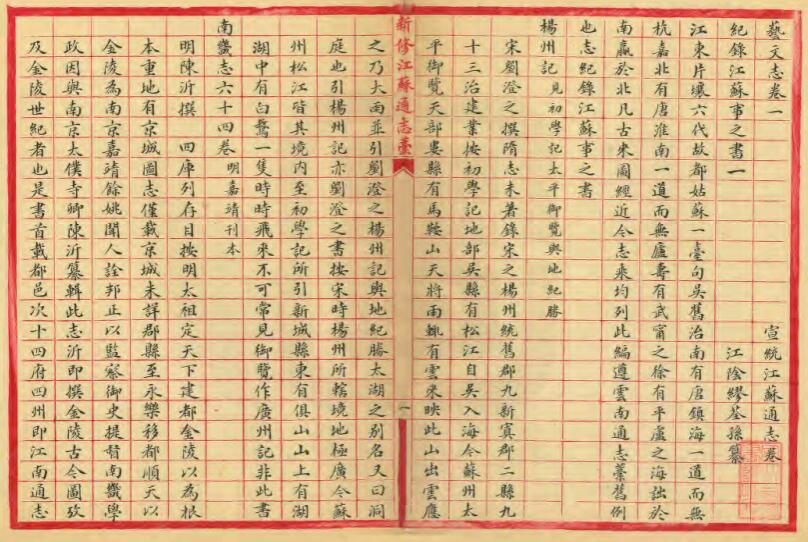 藝文志卷一 宣統江蘇通志卷
紀錄江蘇事之書一 江陰繆荃孫纂
江東片壤六代故都姑蘇一臺句吳舊治南有唐鎮海一道而無
杭嘉北有唐淮南一道而無廬壽有武甯之徐有平盧之海詘於
南贏於北凡古來圖經近今志乘均列此編遵雲南通志藁舊例
也志紀錄江蘇事之書
楊州記 見初學記太平御覽輿地紀勝
宋劉澄之撰隋志未著錄宋之楊州統舊郡九新寘郡二縣九
十三治建業按初學記地部吳縣有松江自吳入海今蘇州太
平御覽天部婁縣有馬鞍山天將雨輒有雲來映此山出雲應
新修江蘇通志藁 一
之乃大雨並引劉澄之楊州記輿地紀勝太湖之別名又曰洞
庭也引楊州記亦劉澄之書按宋時楊州所轄境地極廣今蘇
州松江皆其境內至初學記所引新城縣東有俱山山上有湖
湖中有白鶩一隻時時飛來不可常見御覽作廣州記非此書
南畿志六十四卷 明嘉靖刊本
明陳沂撰 四庫列存目按明太祖定天下建都金陵以為根
本重地有京城圖志僅載京城未詳郡縣至永樂移都順天以
金陵為南京嘉靖餘姚聞人詮邦正以監察御史提督南畿學
政因與南京太僕寺卿陳沂纂輯此志沂即撰金陵古今圖攷
及金陵世紀者也是書首載都邑次十四府四州即江南通志